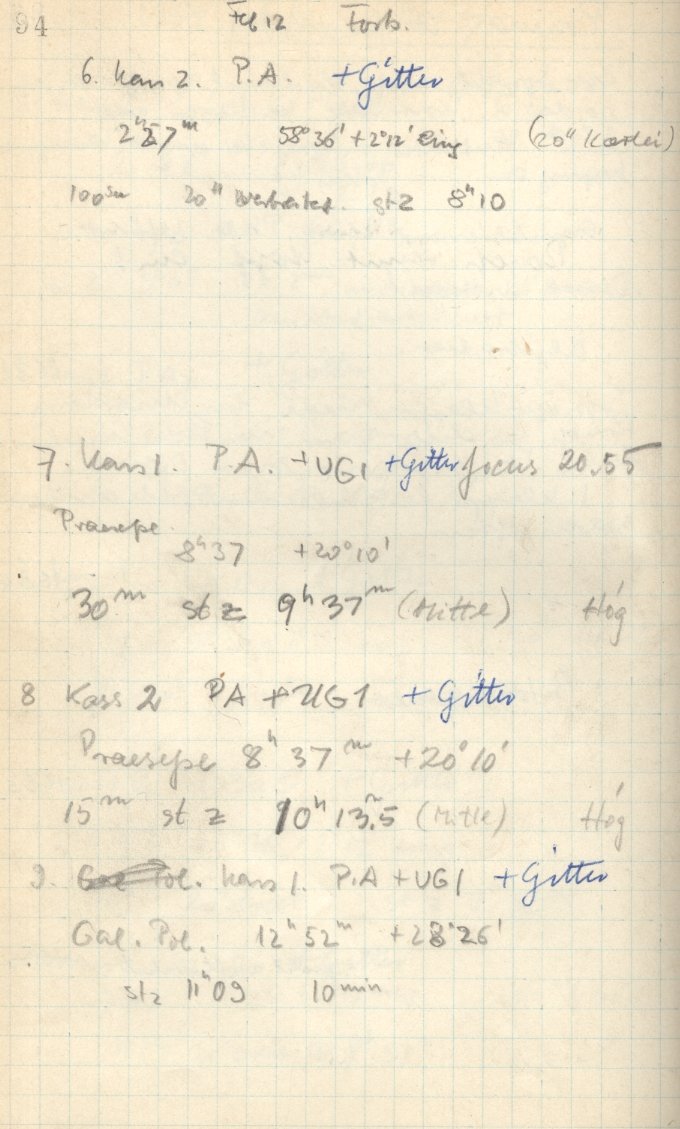 94 Feb 12 Forts.
6. Kass 2. P.A. +Gitter
2ʰ27ᵐ 58°36' +2°12' Eing (20"
100ˢᵉᶜ 20" verbreitet. stz 8ʰ10
7. Kass 1. P.A. +UG1 +Gitter focus 20.55
Praesepe
8ʰ37 +20°10'
30ᵐ st z 9ʰ37ᵐ (Mitte) Høg
8 Kass 2 PA +UG1 +Gitter
Praesepe 8ʰ37ᵐ +20°10'
15ᵐ st z 10ʰ13ᵐ.5 (Mitte) Høg
9. Pol. Kass 1. P.A +UG1 +Gitter
Gal. Pol. 12ʰ52ᵐ +28°26'
stz 11ʰ09 10ᵐⁱⁿ